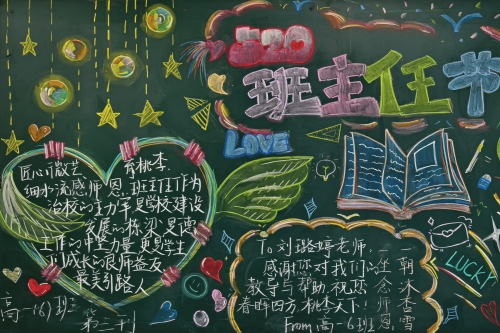 520
班主任节
LOVE
匠心于微艺 育桃李
细水流感师恩.班主任作为
治校的主力军是学校建设
发展的栋梁是德
工作的中坚力量更是学生
成长的良师益友
最美引路人
高一(6)班
第二刊
To 刘璐婷老师
感谢您对我们的
教导与帮助.祝您
春晖四方.桃李天下!
From 高一6班
一生念师恩
朝沐杏雨
LUCKY